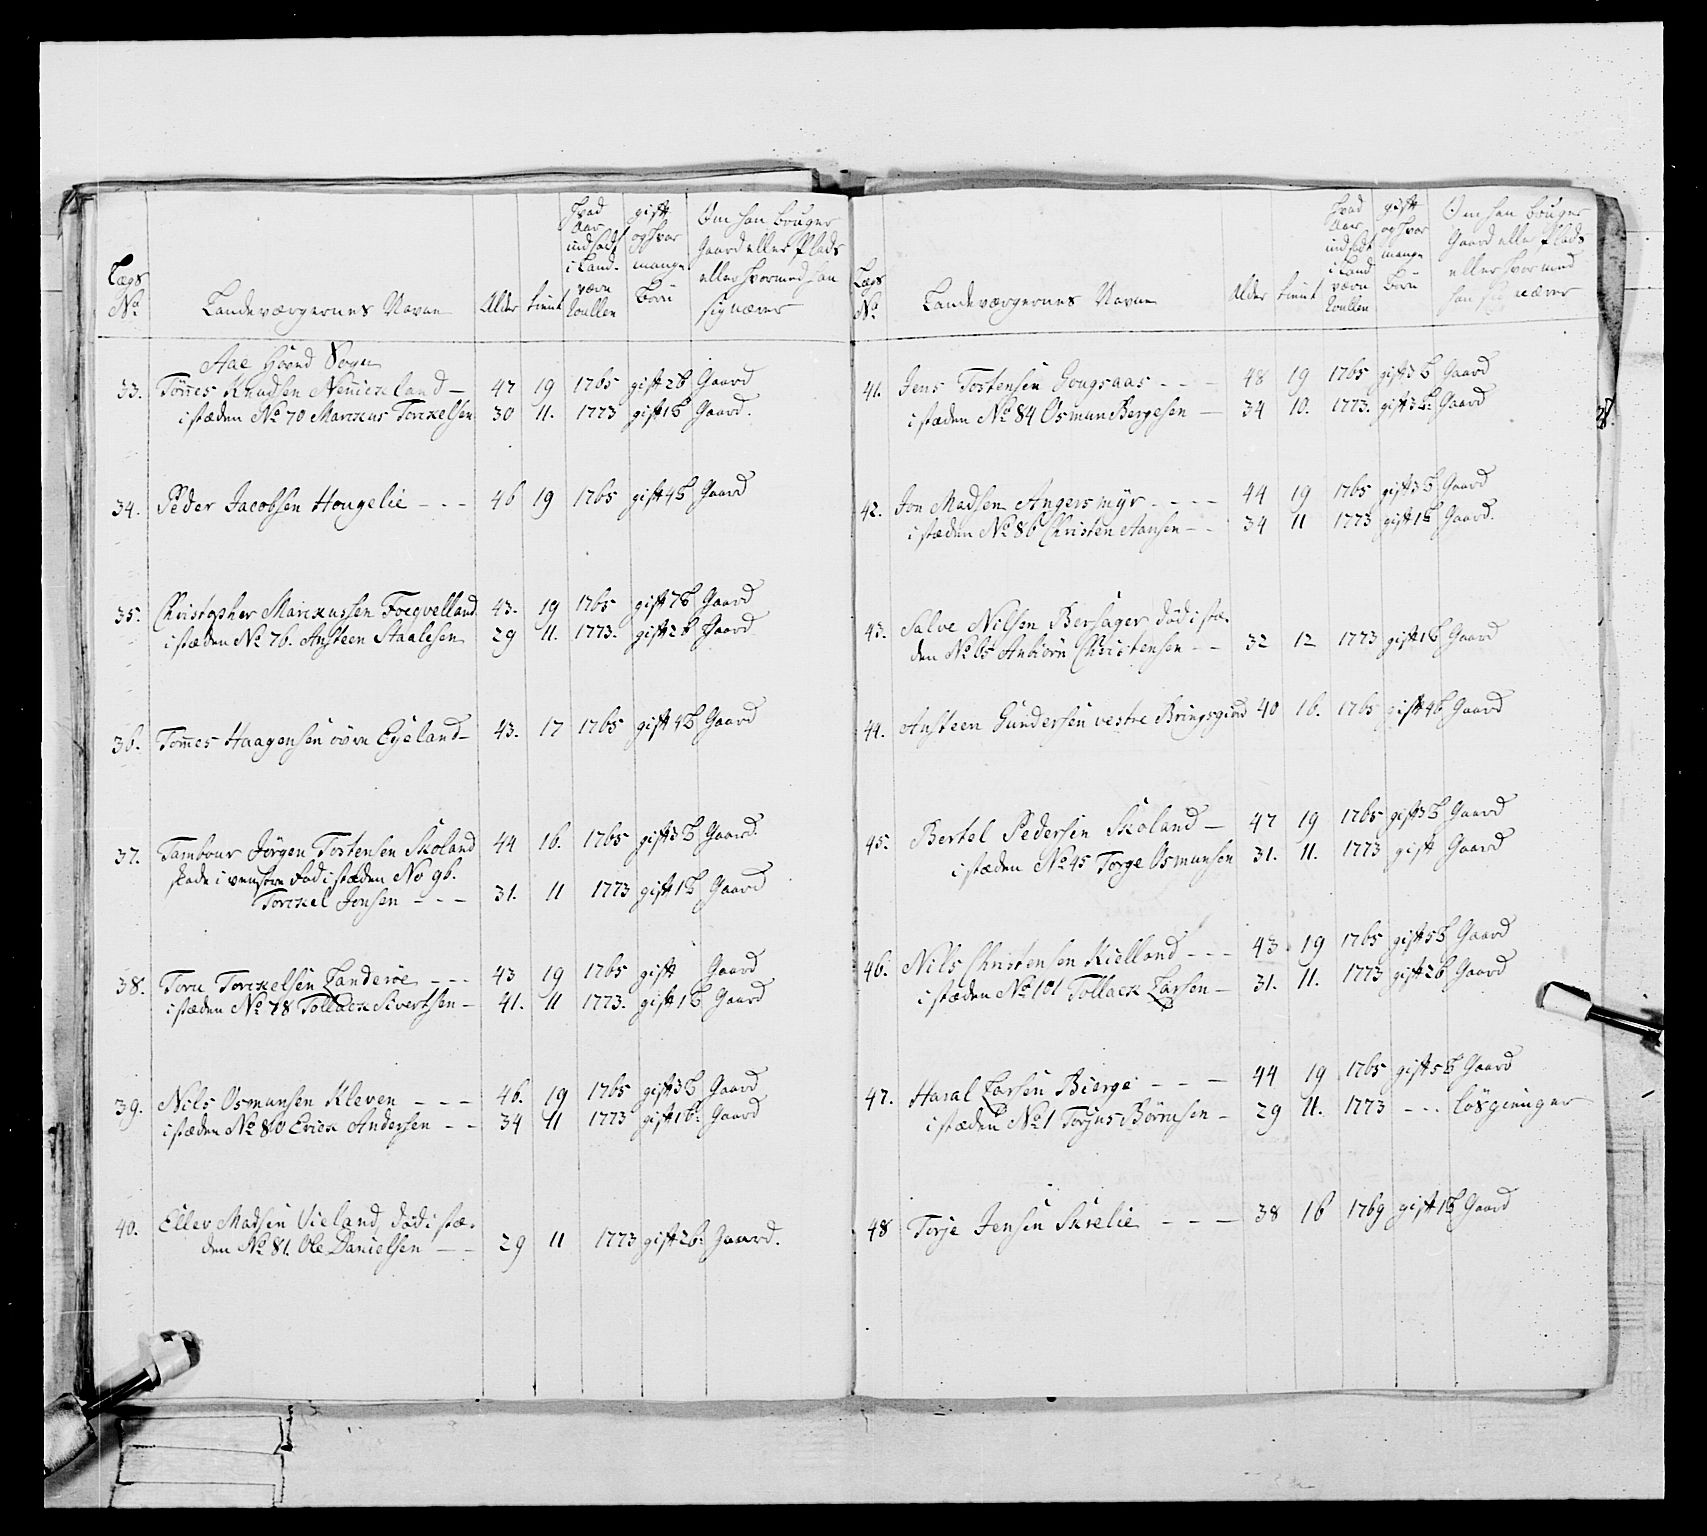 Lægs No. Landeværgernes Navne Alder tient Hvad Aar indsadt i Land-værn Roullen gift og hvor mange Børn Om han bruger Gaard eller Plads eller hvormed han sig nærer
Aae Sogn
33. Tømes Knudsen 47 19 1765 gift 2 B Gaard
i stæden No 70 Marckus Torckelsen 30 11. 1773 gift 1 B Gaard.
34. Peder Jacobsen Hougelie - - - 46 19 1765 gift 4 B Gaard
35. Christopher Marckussen Foegvelland 43. 19 1765 gift 7 B Gaard
i stæden No 76. Ansteen Staalesen 29 11. 1773. gift 2 B Gaard
36. Tomes Haagensen øvre Eyeland - 43. 17 1765 gift 4 B Gaard
37. Tambour Jørgen Tostensen Skoland 44 16. 1765 gift 3 B Gaard.
skade i venstre Fod i stæden No 96.
Torckel Jonsen - - - 31. 11 1773 gift 1 B Gaard
38. Tore Torckelsen Landeroe - - - 43 19 1765 gift Gaard
i stæden No 78 Tollack Sivertsen - 41. 11 1773. gift 1 B Gaard
39. Nils Osmunsen Kleven - - - 46. 19 1765 gift 3 B Gaard
i stæden No 80 Erick Andersen - - 34 11 1773 gift 1 B. Gaard
40. Ellev Madsen Vieland, død i stæ-
den No 81. Ole Danielsen - - 29 11 1773 gift 2 B. Gaard.
Lægs No. Landeværgernes Navne Alder tient Hvad Aar indsadt i Land værn Roullen gift og hvor mange Børn Om han bruger Gaard elle Plads eller hvormed han sig nærer
41. Jens Tostensen Gougsaas - - - 48 19 1765 gift 3 B Gaard
i stæden No 84 Osmun Bergesen - 34 10. 1773. gift 3 B. Gaard
42. Jon Madsen Angersmyr - - - - 44 19 1765 gift 3 B Gaard
i stæden No 86 Christen Hansen - - 34 11 1773 gift 1 B Gaard.
43. Salve Nilsen Bersager død i stæ-
den No 65 Anbiørn Christensen - - 32 12 1773 gift 1 B Gaard
44. Ansteen Gundersen vestre Bringsgind 40 16. 1765 gift 4 B Gaard
45. Bertel Pedersen Skoland - 47 19 1765 gift 3 B Gaard
i stæden No 45 Torge Osmunsen 31. 11. 1773 gift Gaard
46. Nils Christensen Kielland - - - 43 19 1765 gift 5 B Gaard
i stæden No 101 Tollack Larsen - 31. 11. 1773 gift 2 B Gaard
47. Haral Larsen Bierge - - - 44 19 1765 gift 5 B Gaard
i stæden No 1 Torjus Børnesen - 29 11. 1773 - - - løsgienger
48 Torje Jensen Skrelie - - - 38 16 1769 gift 1 B Gaard